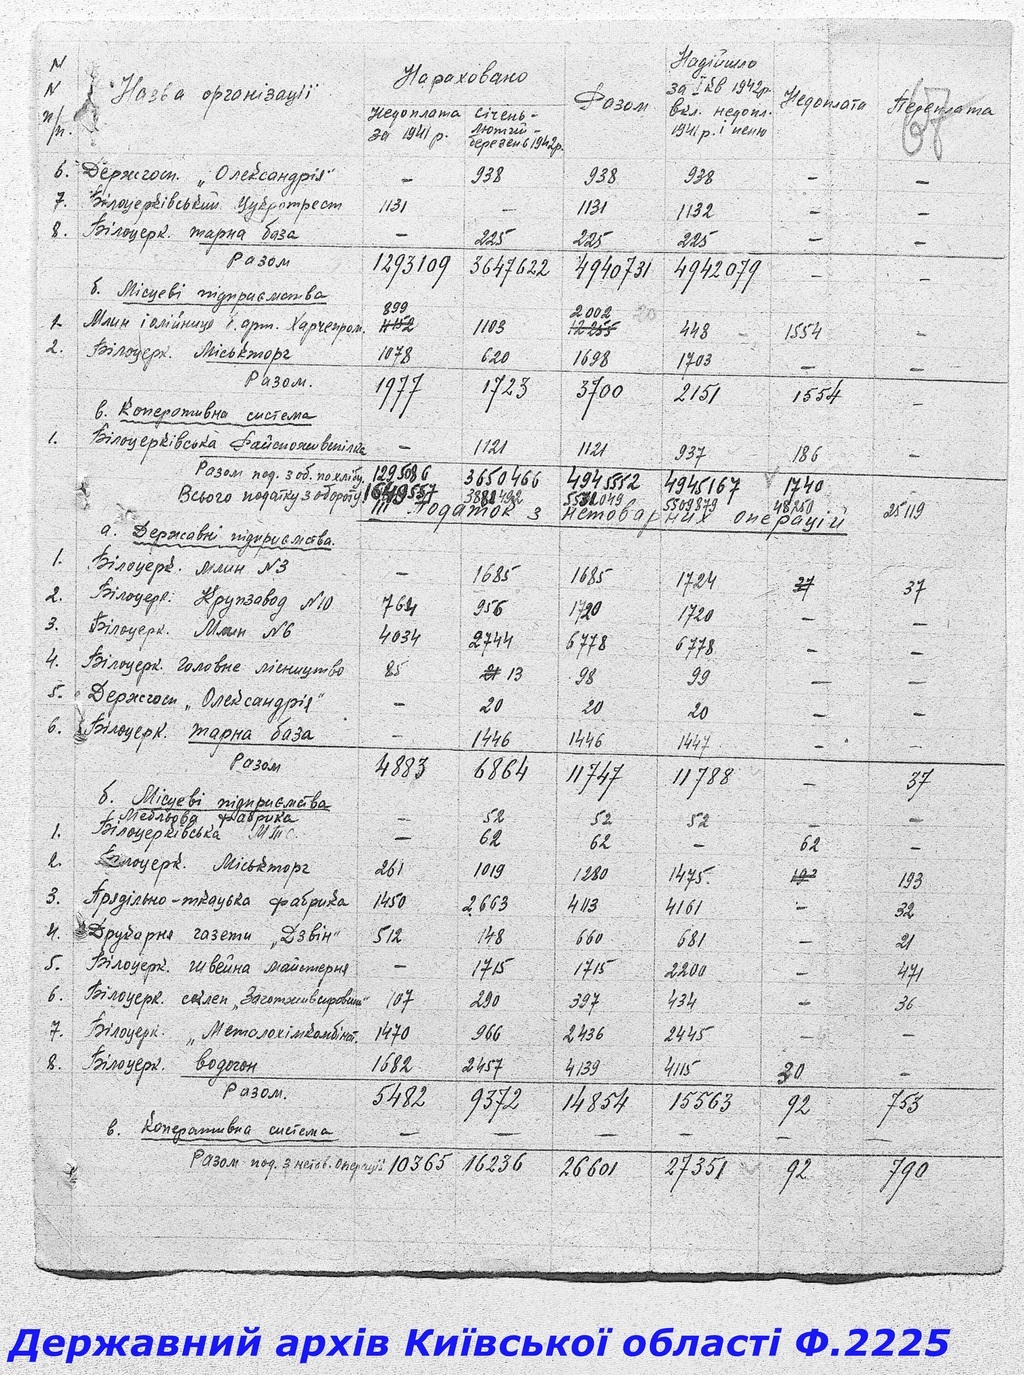 N N п/п. Назва організації Нараховано Разом Надійшло за І кв 1942р вкл. недопл. 1941р. і пеню Недоплата Переплата
Недоплата за 1941 р. січень - лютий - березень 1942р.
67
6. Держгосп. „Олександрія" — 938 938 938 — —
7. Білоцерківський Цукротрест 1131 — 1131 1132 — —
8. Білоцерк. тарна база — 225 225 225 — —
Разом 1293109 3647622 4940731 4942079 — —
б. Місцеві підприємства
899 2002 20
1. Млин і олійниця ї. арт. Харчепром. 1103 12255 448 — 1554 —
2. Білоцерк. Міськторг 1078 620 1698 1703 — —
Разом. 1977 1723 3700 2151 1554 —
в. Коперативна система
1. Білоцерківська Райспоживспілка — 1121 1121 937 186 —
Разом под. з об. по хлібу. 1295086 3650466 4945552 4945167 1740
Всього податку з обороту 1649557 3881492 5531049 5509879 48250 25119
III Податок з нетоварних операцій
а. Державні підприємства.
1. Білоцерк. млин N3 — 1685 1685 1724 37 37
2. Білоцерк. Крупзавод N10 764 956 1720 1720 — —
3. Білоцерк. Млин N6 4034 2744 6778 6778 — —
4. Білоцерк. Головне лісництво 85 21 13 98 99 — —
5. Держгосп „Олександрія" — 20 20 20 — —
6. Білоцерк. тарна база — 1446 1446 1447 — —
Разом 4883 6864 11747 11788 — 37
б. Місцеві підприємства
Мебльова фабрика — 52 52 52
1. Білоцерківська МТС. — 62 62 — 62 —
2. Білоцерк. Міськторг 261 1019 1280 1475. 193 193
3. Прядільно-ткацька фабрика 1450 2663 4113 4161 — 32
4. Друкарня газети „Дзвін" 512 148 660 681 — 21
5. Білоцерк. швейна майстерня — 1715 1715 2200 — 471
6. Білоцерк. склеп „Заготживсировина" 107 290 397 434 — 36
7. Білоцерк. „Металохімкомбінат. 1470 966 2436 2445 — —
8. Білоцерк. водогон 1682 2457 4139 4115 30 —
Разом. 5482 9372 14854 15563 92 753
в. Коперативна система — — — — — —
Разом под. з нетов. операції 10365 16236 26601 27351 92 790
Державний архів Київської області Ф.2225